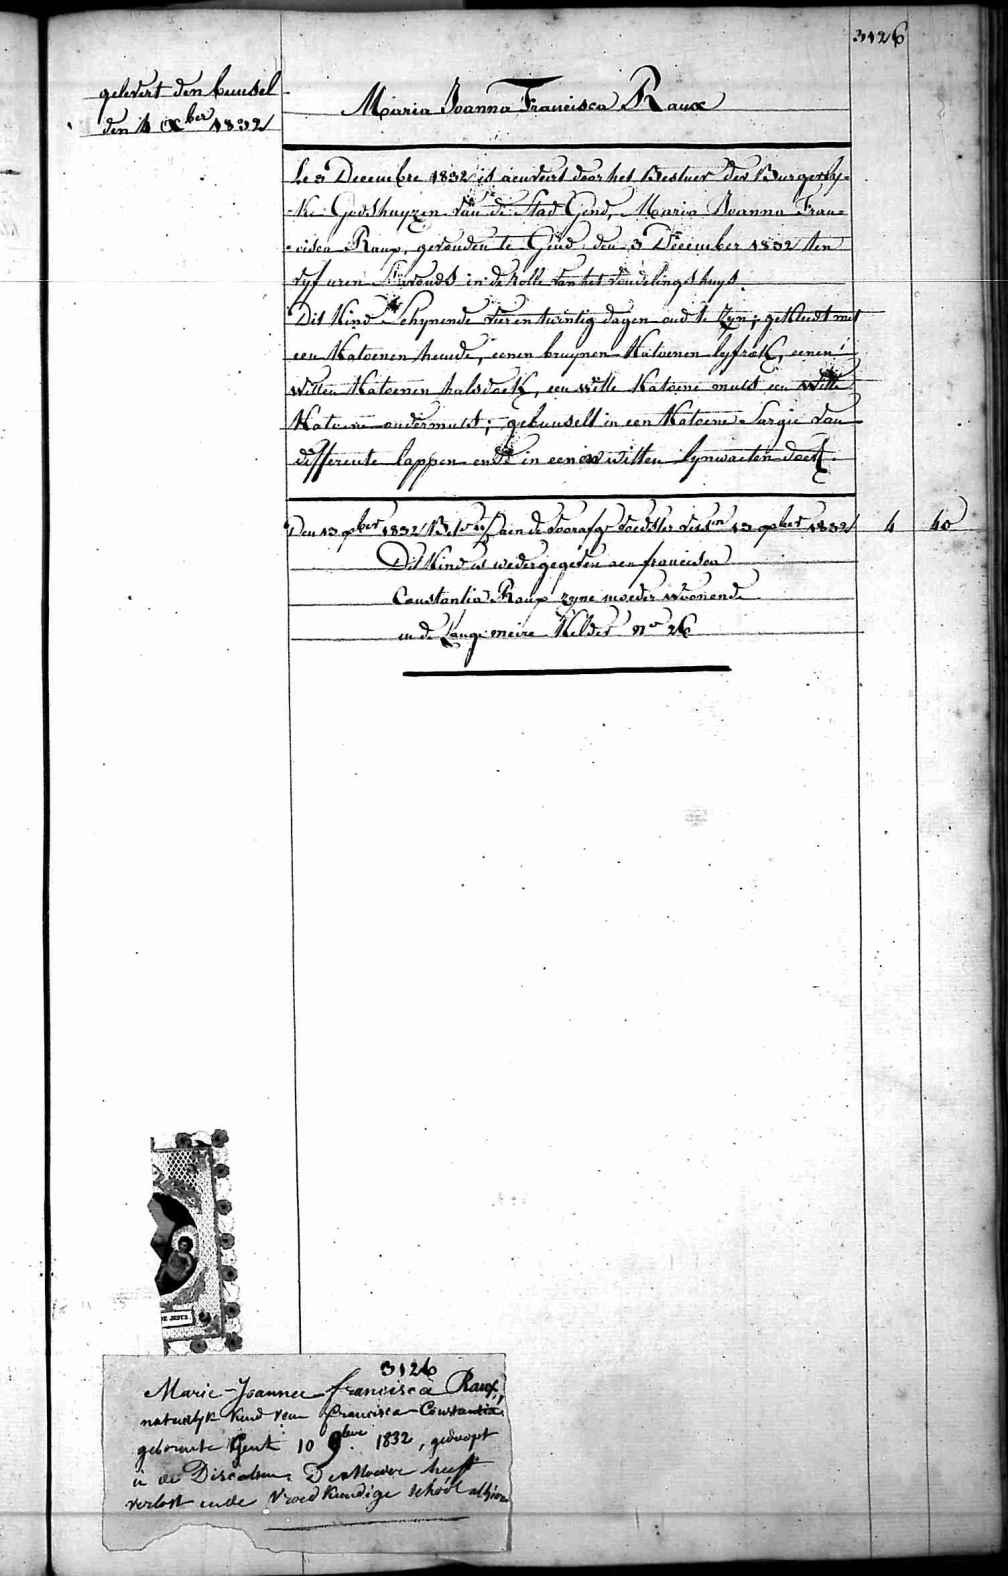 3126
gelevert den bundel
den 4 Xber 1832
Maria Joanna Francisca Raux
Le 3 Decembre 1832 is aenveirt door het Bestuer der Burgerly-
-ke Godshuyzen van de Stad Gend, Maria Joanna Fran-
-cisca Raux, gevonden te Gend den 3 December 1832 ten
vyf uren S'avonds in de Rolle van het vondelingshuys.
Dit Kind Schynende vier en twintig dagen oud te Zyn; gekleedt met
een Katoenen hemde, eenen bruynen Katoenen lyfrok, eenen
Witten Katoenen halsdoek, een witte Katoene muts een Witte
Katoene ondermuts; gebunselt in een Katoene Sargie van
differente lappen ende in eenen witten Lynwaeten doek.
Den 13 Xber 1832 aen de voedster 13 Xber 1832 4 40
Dit Kind is wedergegeven aen francisca
Constantia Raux zyne moeder Woonende
in de Lange meire Kelder Nº 26
DE JESUS
3126
Marie-Joanna francisca Raux,
natuerlyk kind van francisca Constantia
geboren te Gent 10 9bre 1832, gedoopt
in de Discalsen De Moeder heeft
verlost in de Vroedkundige School alhier